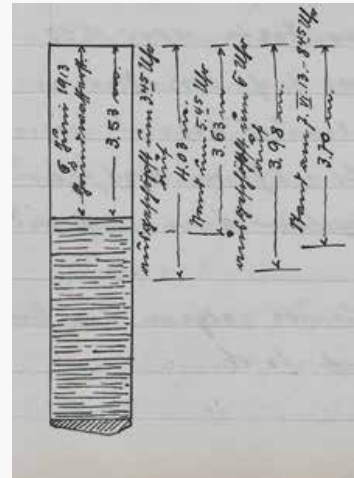 6. Juni 1913
3.53 m.
ausgeschöpft um 3.45 Uhr
auf
4.03 m.
Stand um 5.45 Uhr
3.63 m.
ausgeschöpft um 6 Uhr
auf
3,98 m.
Stand am 7. VI. 13. - 8 45 Uhr
3.70 m.